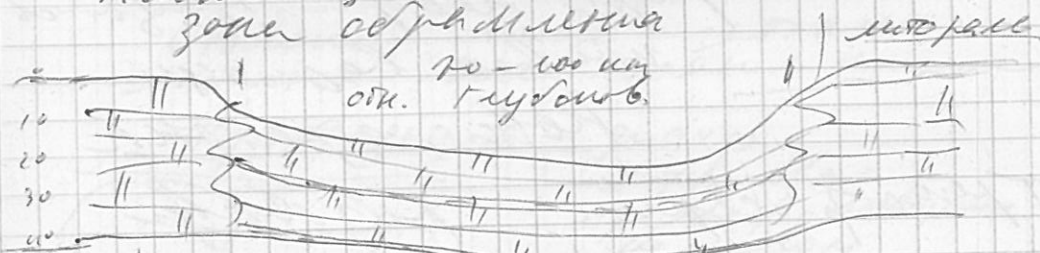 зона обрамления
литораль
70-100 км
отн. глубоков.
0
10
20
30
40